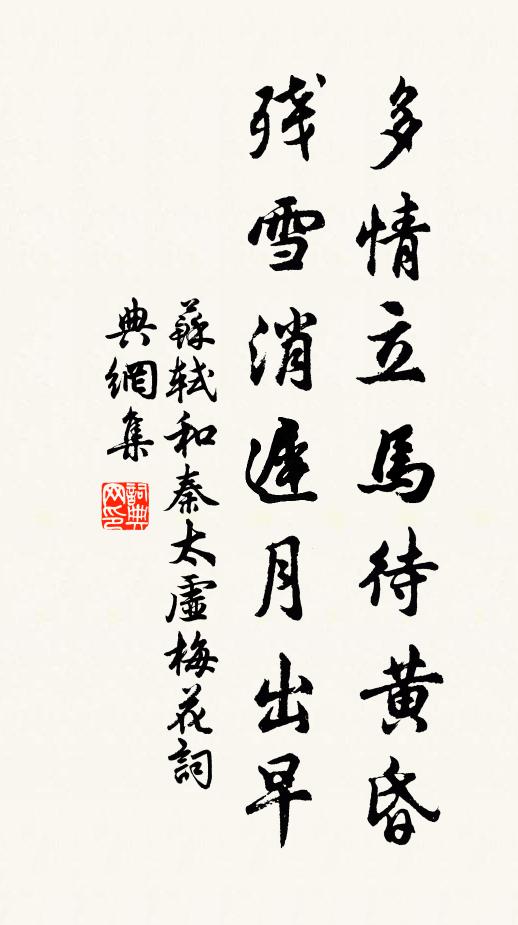 多情立馬待黄昏
残雪消遲月出早
蘇軾和秦太虛梅花詞
典網集
詞典網印